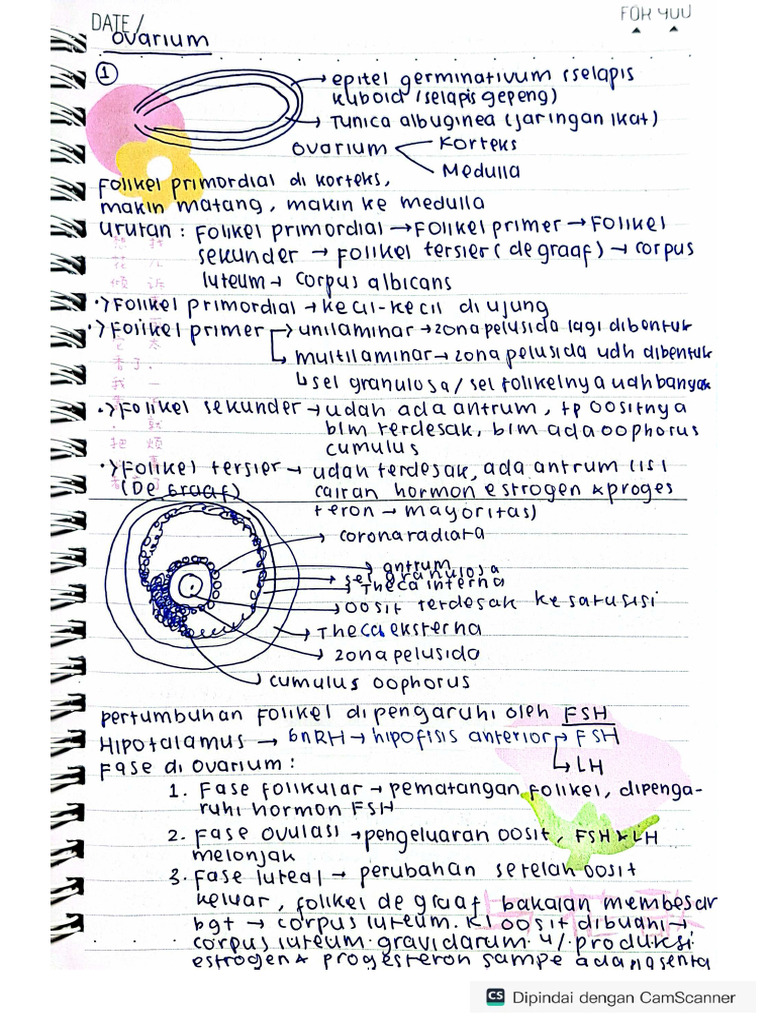 DATE/
FOR YOU
ovarium
1
→ epitel germinativum (selapis
kuboid/selapis gepeng)
→ Tunica albuginea (jaringan ikat)
ovarium
Korteks
Medulla
Folikel primordial di korteks,
makin matang, makin ke medulla
urutan : Folikel primordial → Folikel primer → Folikel
sekunder → folikel tersier (de graaf) → corpus
luteum → corpus albicans
·> Folikel primordial → kecil-kecil di ujung
·> Folikel primer → unilaminar → zona pelusida lagi dibentuk
↳ multilaminar → zona pelusida udh dibentuk
↳ sel granulosa/sel folikelnya udh banyak
·> Folikel sekunder → udah ada antrum, tp oositnya
blm terdesak, blm ada oophorus
cumulus
·> Folikel tersier → udah terdesak, ada antrum (isi
(De Graaf)
cairan hormon estrogen & proges
teron → mayoritas)
→ corona radiata
→ antrum
→ sel granulosa
→ Theca interna
→ oosit terdesak ke satu sisi
→ Theca eksterna
→ zona pelusida
→ cumulus oophorus
pertumbuhan folikel dipengaruhi oleh FSH
Hipotalamus → GnRH → hipofisis anterior → FSH
↳ LH
Fase di ovarium :
1. Fase folikular → pematangan folikel, dipenga-
ruhi hormon FSH
2. Fase ovulasi → pengeluaran oosit, FSH & LH
melonjak
3. Fase luteal → perubahan setelah oosit
keluar, folikel de graaf bakalan membesar
bgt → corpus luteum. Kl oosit dibuahi →
corpus luteum gravidarum u/ produksi
estrogen & progesteron sampe ada plasenta
CS Dipindai dengan CamScanner